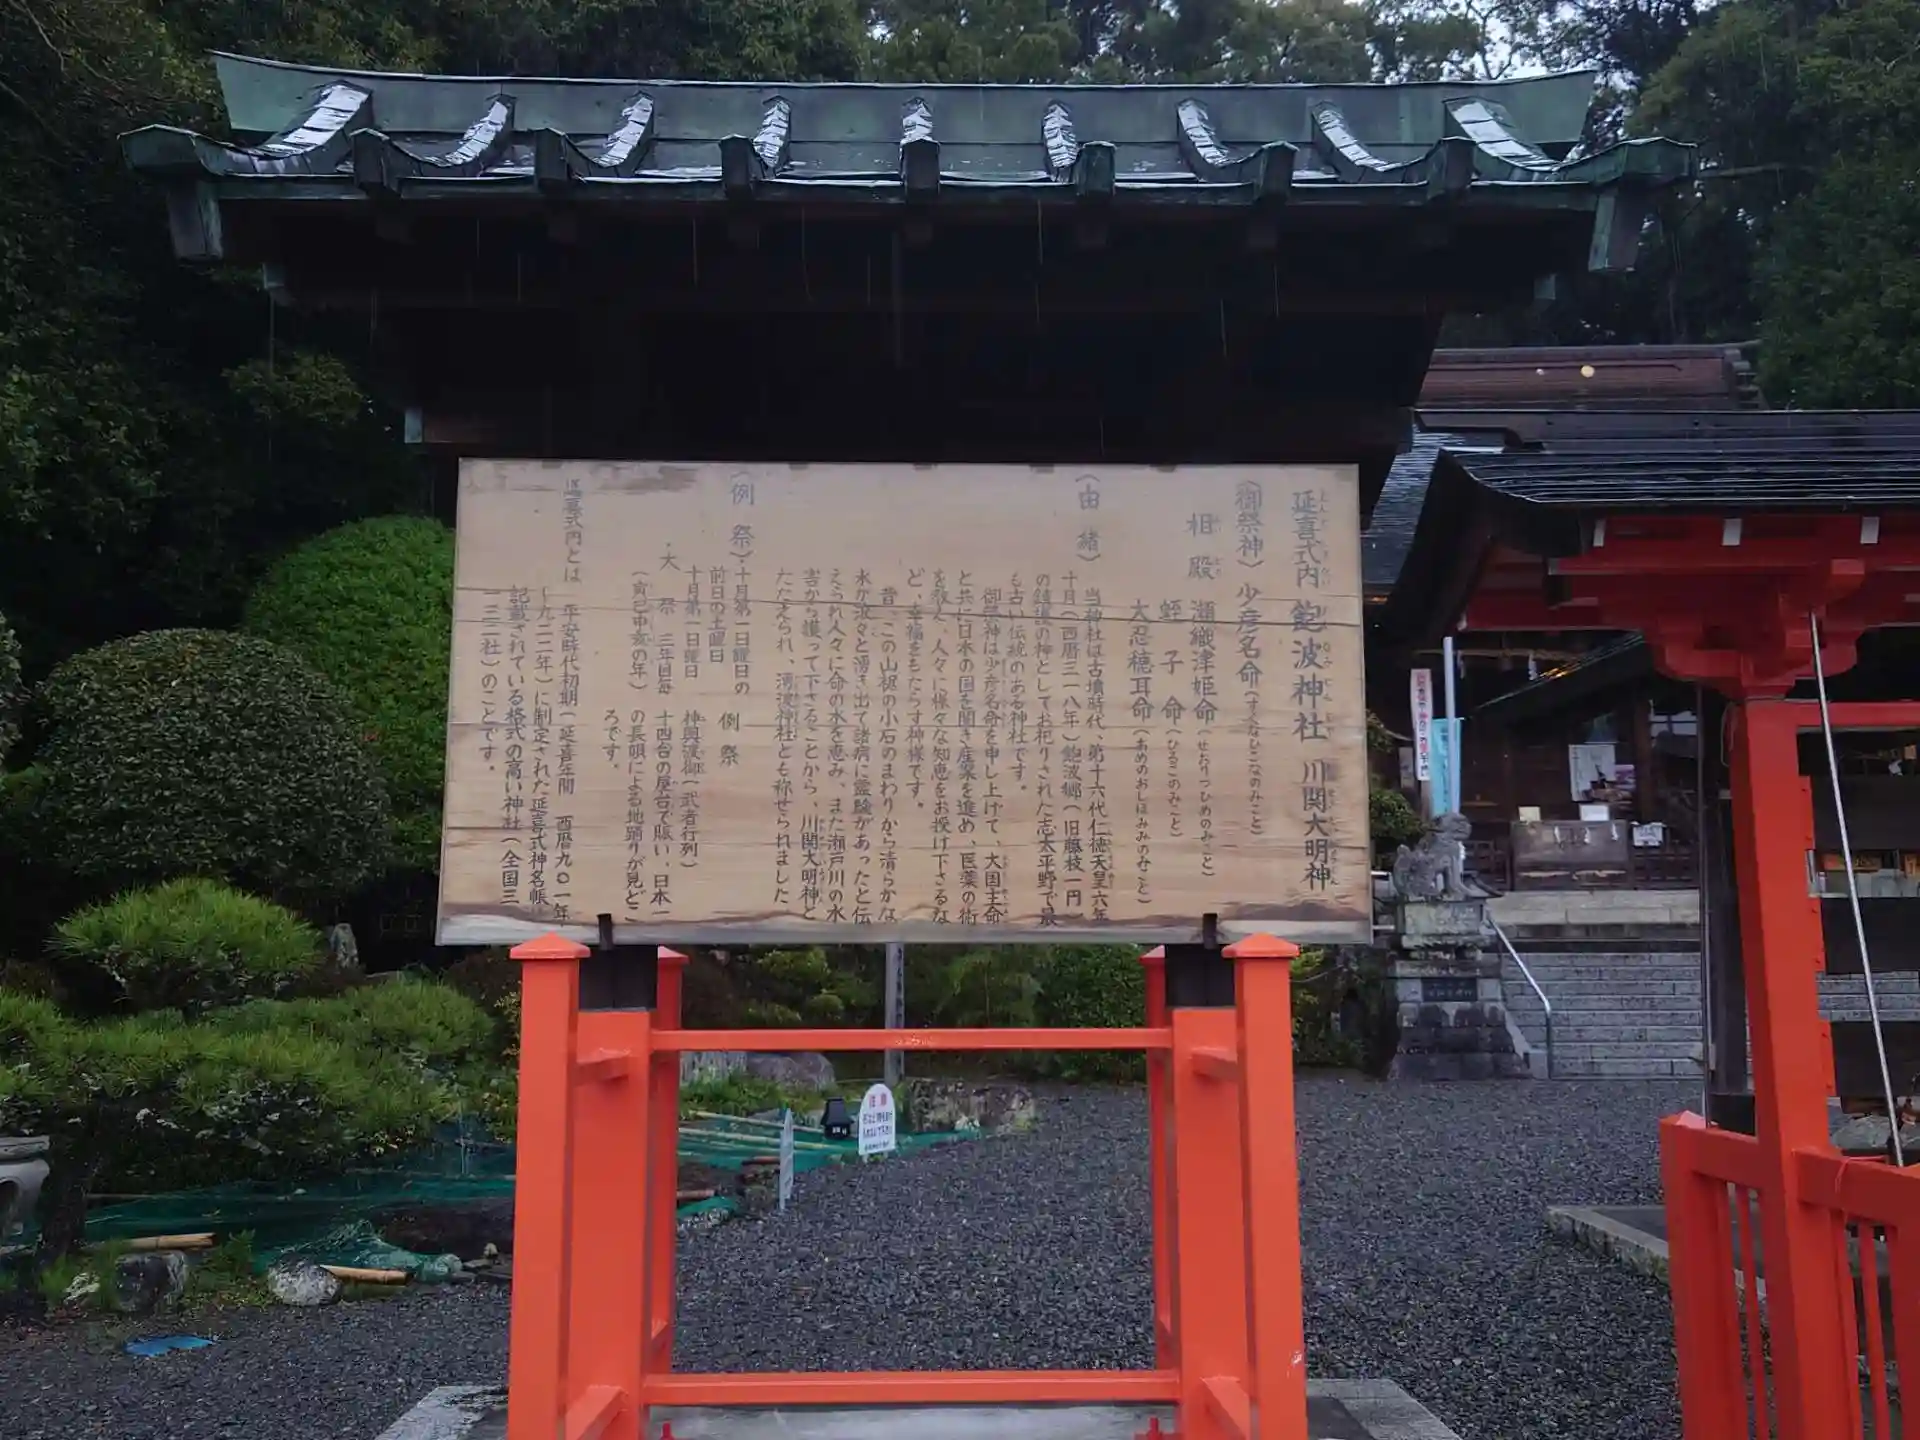 延喜式内 飽波神社 川関大明神
(御祭神) 少彦名命(すくなひこなのみこと)
相殿 瀬織津姫命(せおりつひめのみこと)
蛭子命(ひるこのみこと)
大忍穂耳命(あめのおしほみみのみこと)
(由緒)
当神社は古墳時代、第十六代仁徳天皇六年
十月(西暦三一八年)飽波郷(旧藤枝一円)
の鎮護の神としてお祀りされた志太平野で最
も古い伝統のある神社です。
御祭神は少彦名命を申し上げて、大国主命
と共に日本の国を開き産業を進め、医薬の術
を教え、人々に様々な知恵をお授け下さるな
ど、幸福をもたらす神様です。
昔、この山裾の小石のまわりから清らかな
水が滾々と湧き出て諸病に霊験があったと伝
えられ人々に命の水を恵み、また瀬戸川の水
害から護って下さることから、川関大明神と
たたえられ、湧波神社とも称せられました
(例祭)・十月第一日曜日の
前日の土曜日 例祭
十月第一日曜日 神輿渡御(武者行列)
・大祭 三年目毎 十四台の屋台で賑い、日本一
(寅巳申亥の年) の長唄による地踊りが見どこ
ろです。
延喜式内とは 平安時代初期(延喜年間 西暦九〇一年
~九二二年)に制定された延喜式神名帳に
記載されている格式の高い神社(全国三
一三二社)のことです。